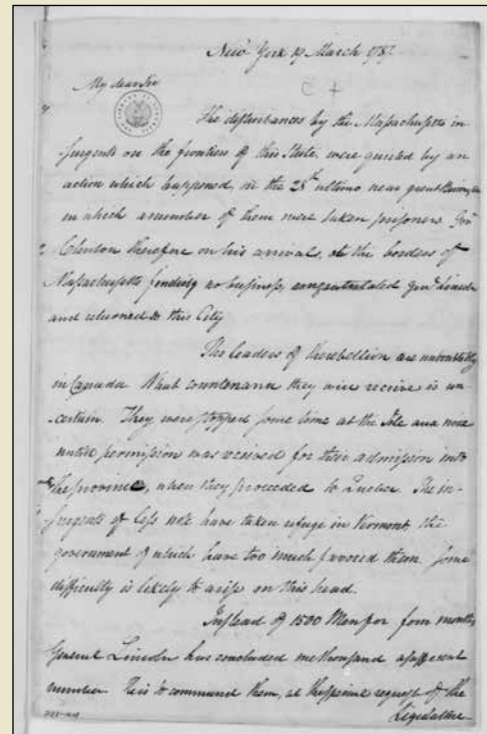 New York 19 March 1787
My dear Sir
C +
The disturbances by the Massachusetts in-
surgents on the frontiers of this State, were quieted by an
action which happened, on the 28th ultimo near great
in which a number of them were taken prisoners. Govr
Clinton therefore on his arrival, at the borders of
Massachusetts finding no business, congratulated genl Lincoln
and returned to this City
The leaders of the rebellion are undoubtedly
in Canada. What countenance they will receive is un-
certain. They were stopped some time at the Isle aux noix
until permission was received for their admission into
the province, when they proceeded to Quebec. The in-
surgents of less note have taken refuge in Vermont, the
government of which have too much favored them. Some
difficulty is likely to arise on this head.
Instead of 1500 Men for four months
General Lincoln has concluded one thousand a sufficient
number. He is to command them, at the request of the
Legislature